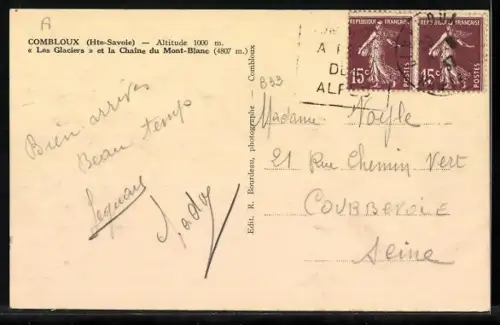 A
COMBLOUX (Hte-Savoie) — Altitude 1000 m.
« Les Glaciers » et la Chaîne du Mont-Blanc (4807 m.)
Bien arrivés
Beau temp
Edit. R. Bourdeau, photographe - Combloux
833
REPUBLIQUE FRANÇAISE
15c
POSTES
REPUBLIQUE FRANÇAISE
15c
POSTES
Madame
21 Rue Chemin Vert
COURBEVOIE
Seine